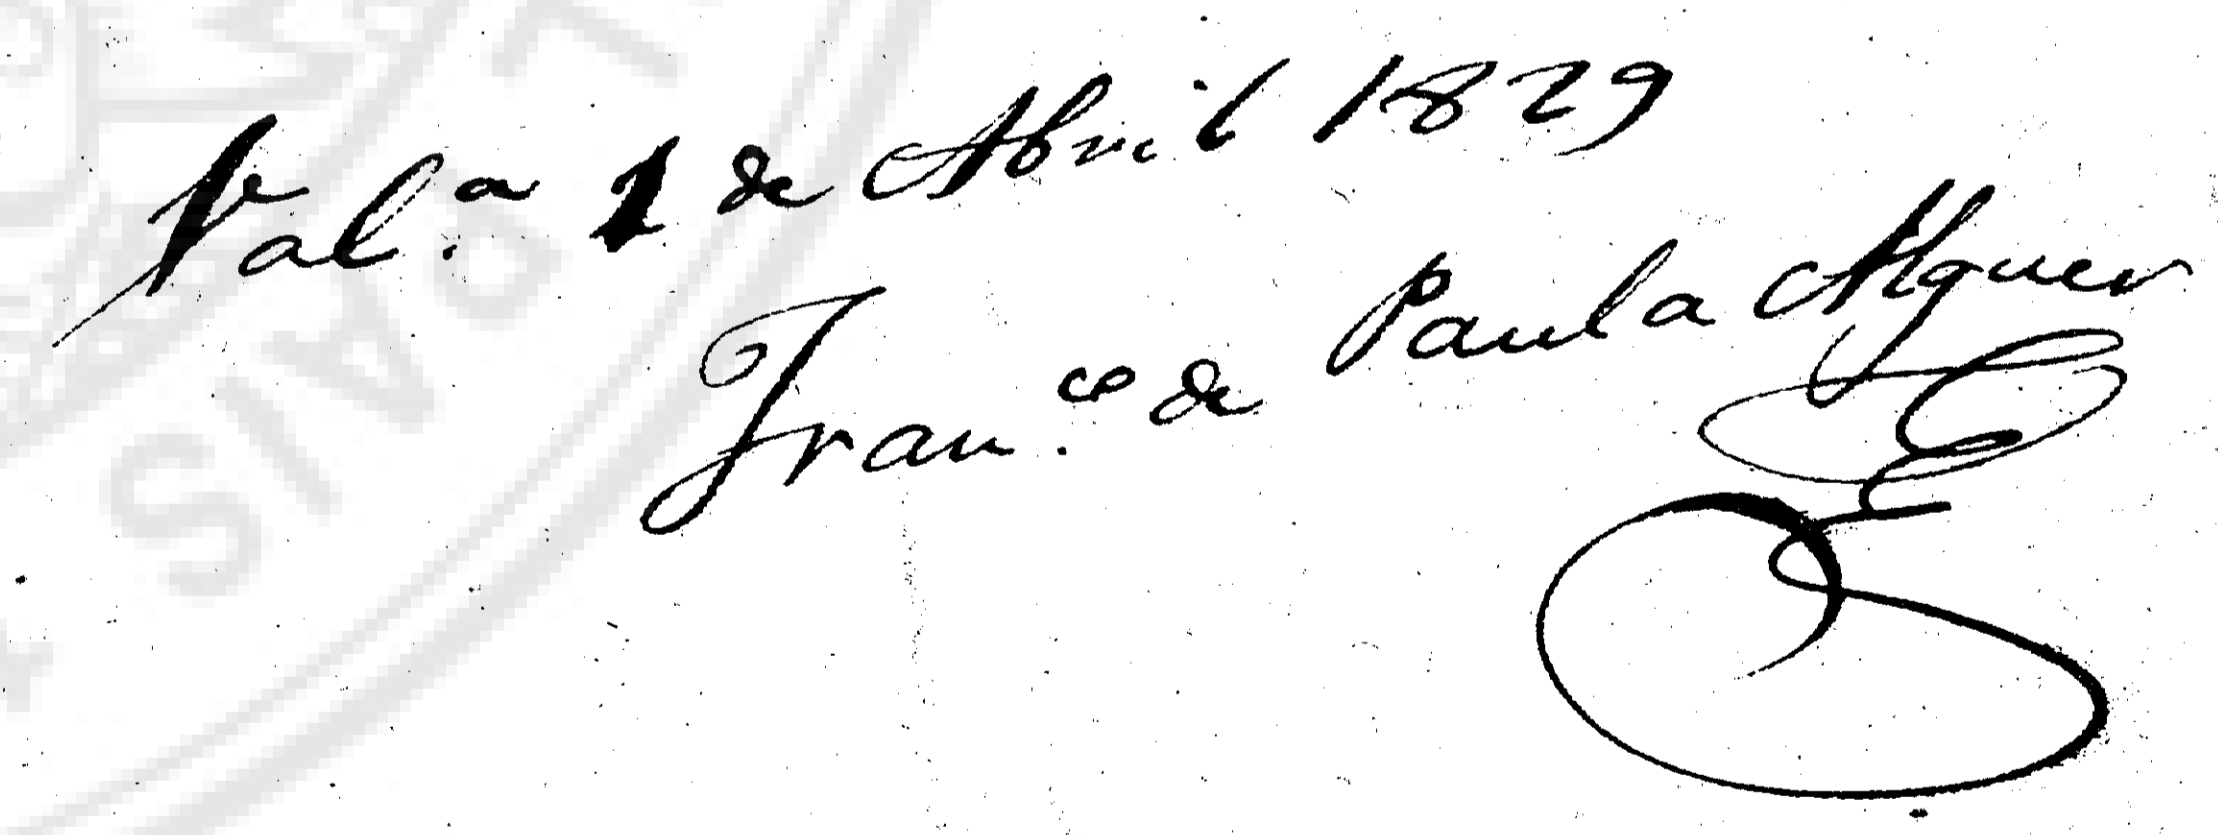 Val.ª 1 de Abril 1829
Fran.co de Paula Alguer